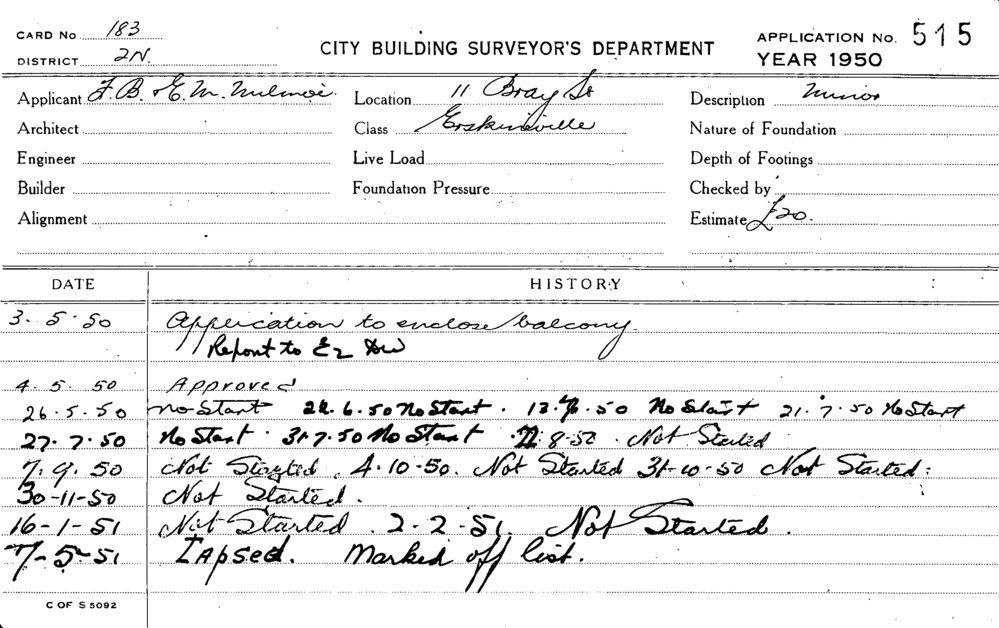 CARD No 183
DISTRICT 2N.
CITY BUILDING SURVEYOR'S DEPARTMENT
APPLICATION No. 515
YEAR 1950
Applicant F. B. & E. M. Location 11 Bray St Description Minor
Architect Class Erskineville Nature of Foundation
Engineer Live Load Depth of Footings
Builder Foundation Pressure Checked by
Alignment Estimate £20.
DATE HISTORY
3. 5. 50 Application to enclose balcony.
Report to
4. 5. 50 Approved
26. 5. 50 No Start 6. 50 No Start. 50 No Start 21. 7. 50 No Start
27. 7. 50 No Start. 31.7.50 No Start. 8-50. Not Started
7. 9. 50 Not Started. 4-10-50. Not Started 31-10-50 Not Started:
30-11-50 Not Started.
16-1-51 Not Started. 2-2-51. Not Started.
5-51 Lapsed. Marked off list.
C OF S 5092